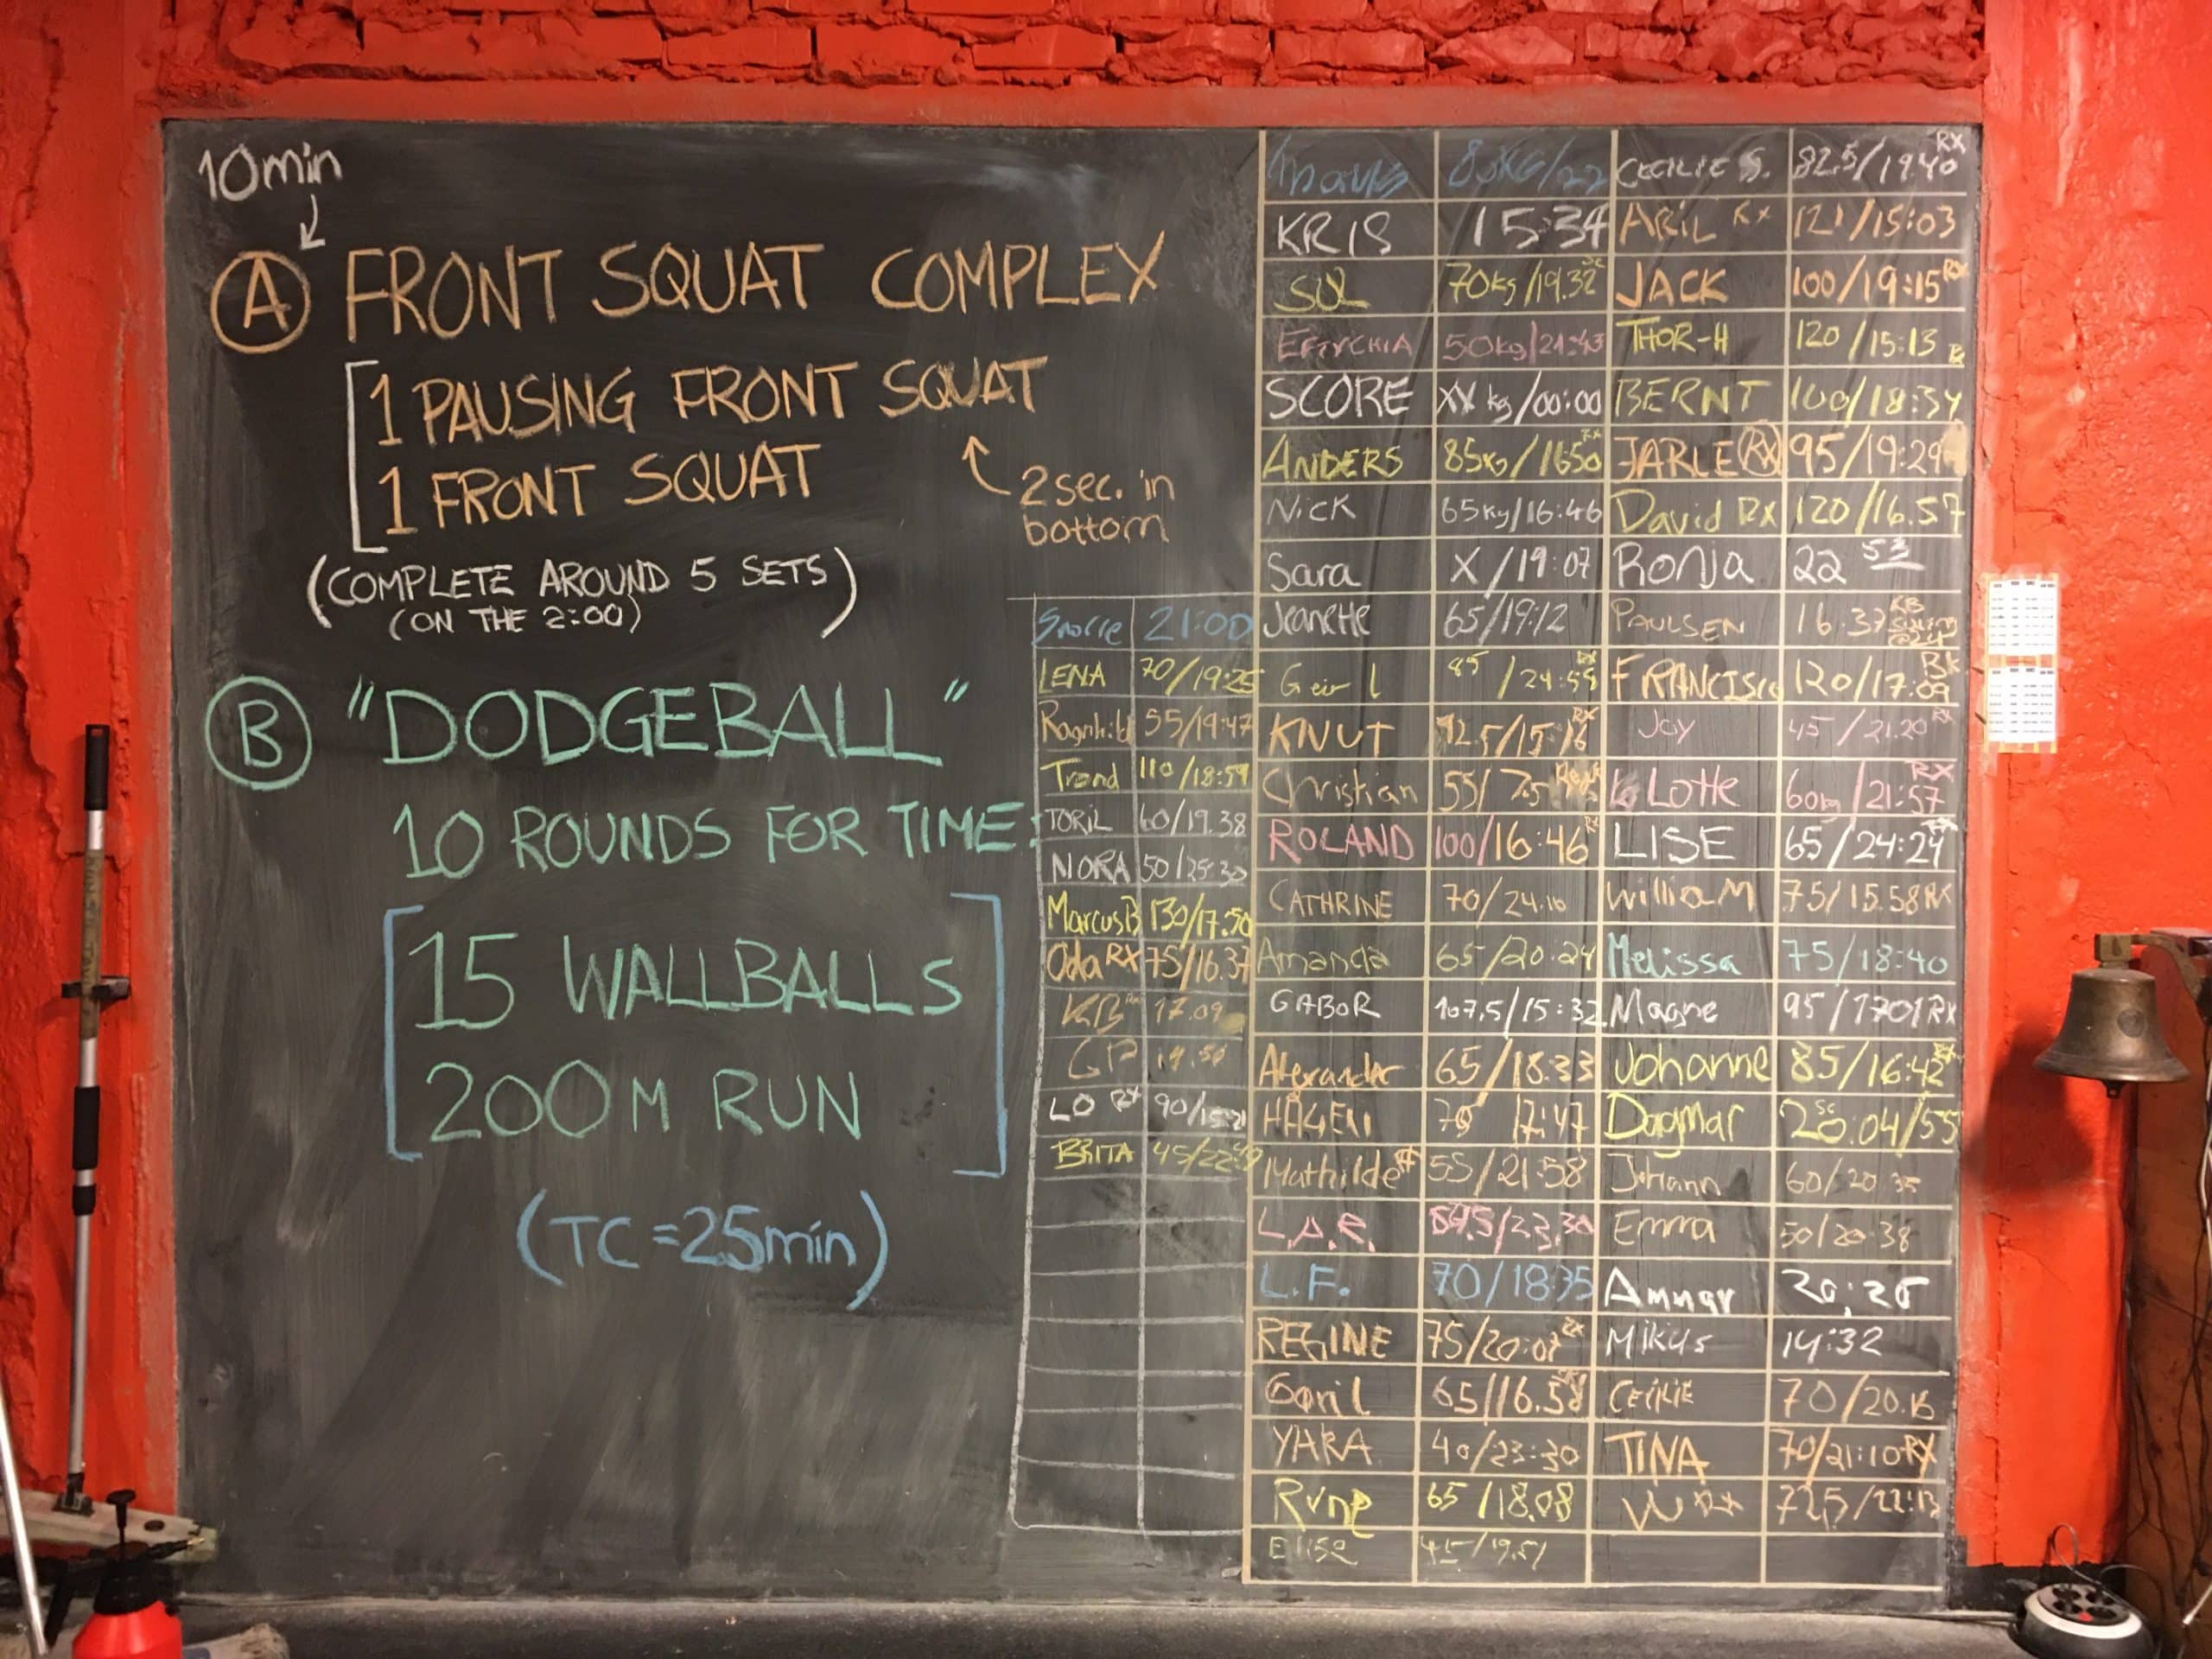 10min
A FRONT SQUAT COMPLEX
1 PAUSING FRONT SQUAT
1 FRONT SQUAT
2 sec. in
bottom
(COMPLETE AROUND 5 SETS)
(ON THE 2:00)
B "DODGEBALL"
10 ROUNDS FOR TIME:
15 WALLBALLS
200M RUN
(TC=25min)
Snorre 21:00
LENA 70/19:25
Ragnhild 55/19:47
Trond 110/18:59
TORIL 60/19.38
NORA 50/25:30
Marcus B 130/17.50
Oda RX 75/16.37
KB 17.09
GP 19.50
LO RX 90/15:21
BRITA 45/22
KRIS 15:34
SUL 70kg/19.32 sc
EFTYCHIA 50kg/21:43
SCORE XX kg/00:00
ANDERS 85kg/1650 Rx
NiCK 65kg/16:46
Sara X/19:07
Jeanette 65/19:12
Geir L 85/24:55 Rx
KNUT 92.5/15:16 RX
Christian 55/
ROLAND 100/16:46 Rx
CATHRINE 70/24.10
Amanda 65/20.24
GABOR 107,5/15:32
Alexander 65/18.33
HÅGEN 17:47
Mathilde RX 55/21:58
L.A.R. /23.30
L.F. 70/1835
REGINE 75/20:07 Rx
Goril 65/16.58
YARA 40/23:30
Rune 65/18.08
Elise 45/19.51
CECILIE S. 82.5/19.40 RX
ARiL Rx 121/15:03
JACK 100/19:15 RX
THOR-H 120/15:13 Rx
BERNT 100/18:34
JARLE RX 95/19:29
David RX 120/16.57
Ronja 22 53
PAULSEN 16.37 KB SWING @24
FRANCISCO 120/17:09 RX
Jay 45/21.20 RX
Lotte 60kg/21:57 RX
LISE 65/24:24
WilliaM 75/15.58 RX
Melissa 75/18:40
Magne 95/1701 RX
Johanne 85/16:42 Rx
Dagmar 20:04/55 sc
Johann 60/20 35
Emma 50/20.38
Ammar 20:26
Mikus 14:32
CECILIE 70/20.16
TINA 70/21:10 RX
VU RX 72,5/22:13